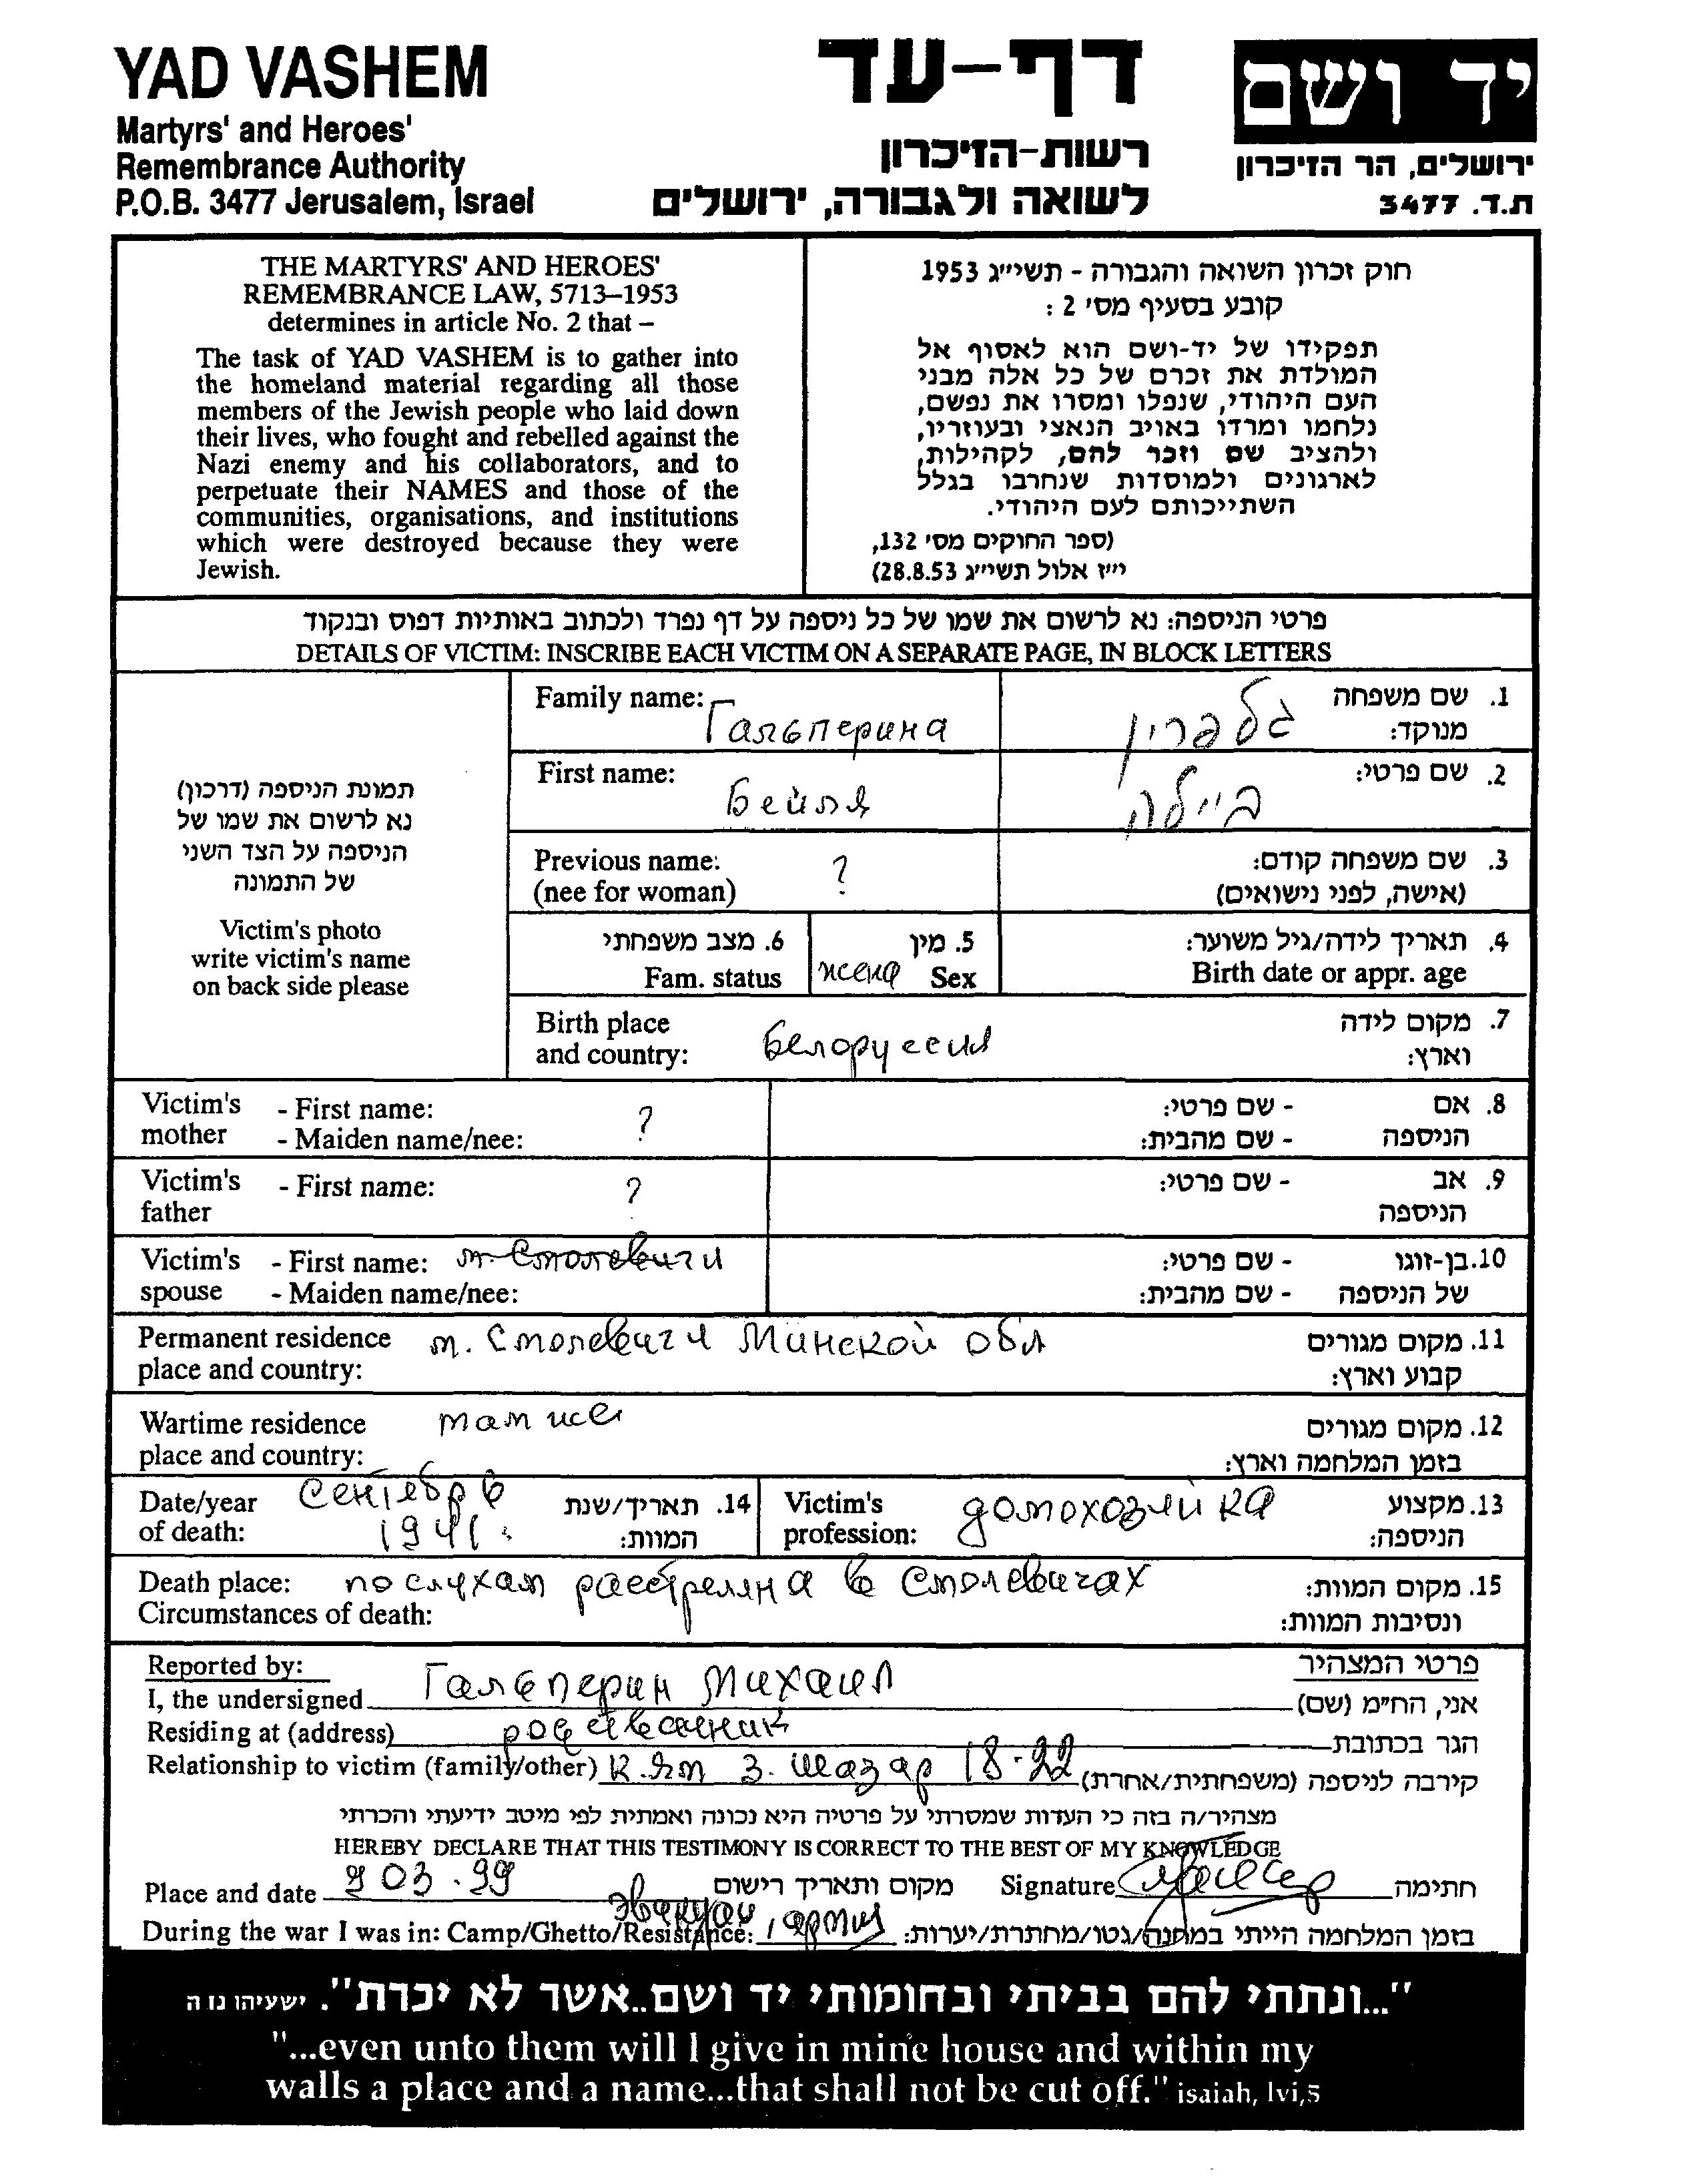 YAD VASHEM
Martyrs' and Heroes'
Remembrance Authority
P.O.B. 3477 Jerusalem, Israel
דף-עד
רשות-הזיכרון
לשואה ולגבורה, ירושלים
יד ושם
ירושלים, הר הזיכרון
ת.ד. 3477
THE MARTYRS' AND HEROES'
REMEMBRANCE LAW, 5713–1953
determines in article No. 2 that –
The task of YAD VASHEM is to gather into
the homeland material regarding all those
members of the Jewish people who laid down
their lives, who fought and rebelled against the
Nazi enemy and his collaborators, and to
perpetuate their NAMES and those of the
communities, organisations, and institutions
which were destroyed because they were
Jewish.
חוק זכרון השואה והגבורה - תשי״ג 1953
קובע בסעיף מס' 2 :
תפקידו של יד-ושם הוא לאסוף אל
המולדת את זכרם של כל אלה מבני
העם היהודי, שנפלו ומסרו את נפשם,
נלחמו ומרדו באויב הנאצי ובעוזריו,
ולהציב שם וזכר להם, לקהילות,
לארגונים ולמוסדות שנחרבו בגלל
השתייכותם לעם היהודי.
(ספר החוקים מס' 132,
י״ז אלול תשי״ג 28.8.53)
פרטי הניספה: נא לרשום את שמו של כל ניספה על דף נפרד ולכתוב באותיות דפוס ובנקוד
DETAILS OF VICTIM: INSCRIBE EACH VICTIM ON A SEPARATE PAGE, IN BLOCK LETTERS
תמונת הניספה (דרכון)
נא לרשום את שמו של
הניספה על הצד השני
של התמונה
Victim's photo
write victim's name
on back side please
Family name: Гальперина גלפרין 1. שם משפחה
מנוקד:
First name: Бейля ביילה 2. שם פרטי:
Previous name: ? 3. שם משפחה קודם:
(nee for woman) (אישה, לפני נישואים)
6. מצב משפחתי 5. מין 4. תאריך לידה/גיל משוער:
Fam. status жена Sex Birth date or appr. age
Birth place Белоруссия 7. מקום לידה
and country: וארץ:
Victim's - First name: ? - שם פרטי: 8. אם
mother - Maiden name/nee: - שם מהבית: הניספה
Victim's - First name: ? - שם פרטי: 9. אב
father הניספה
Victim's - First name: м. Смолевичи - שם פרטי: 10. בן-זוגו
spouse - Maiden name/nee: - שם מהבית: של הניספה
Permanent residence м. Смолевичи Минской обл 11. מקום מגורים
place and country: קבוע וארץ:
Wartime residence там же 12. מקום מגורים
place and country: בזמן המלחמה וארץ:
Date/year Сентебрь 14. תאריך/שנת Victim's домохозяйка 13. מקצוע
of death: 1941. המוות: profession: הניספה:
Death place: по слухам расстреляна в Смолевичах 15. מקום המוות:
Circumstances of death: ונסיבות המוות:
Reported by: פרטי המצהיר
I, the undersigned Гальперин Михаил אני, הח״מ (שם)
Residing at (address) родственник הגר בכתובת
Relationship to victim (family/other) К. Ям З. Шазар 18-22 קירבה לניספה (משפחתית/אחרת)
מצהיר/ה בזה כי העדות שמסרתי על פרטיה היא נכונה ואמתית לפי מיטב ידיעתי והכרתי
HEREBY DECLARE THAT THIS TESTIMONY IS CORRECT TO THE BEST OF MY KNOWLEDGE
Place and date 03.99 מקום ותאריך רישום Signature חתימה
During the war I was in: Camp/Ghetto/Resistance: армия בזמן המלחמה הייתי במחנה/גטו/מחתרת/יערות:
"...ונתתי להם בביתי ובחומותי יד ושם..אשר לא יכרת". ישעיהו נו ה
"...even unto them will I give in mine house and within my
walls a place and a name...that shall not be cut off." isaiah, lvi,5